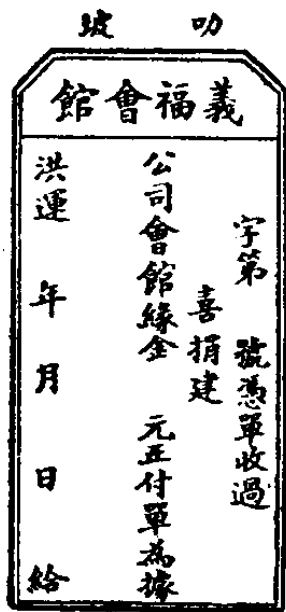 叻坡
義福會館
字第 號憑單收過
喜捐建
公司會館緣金 元正付單為據
洪運 年 月 日 給